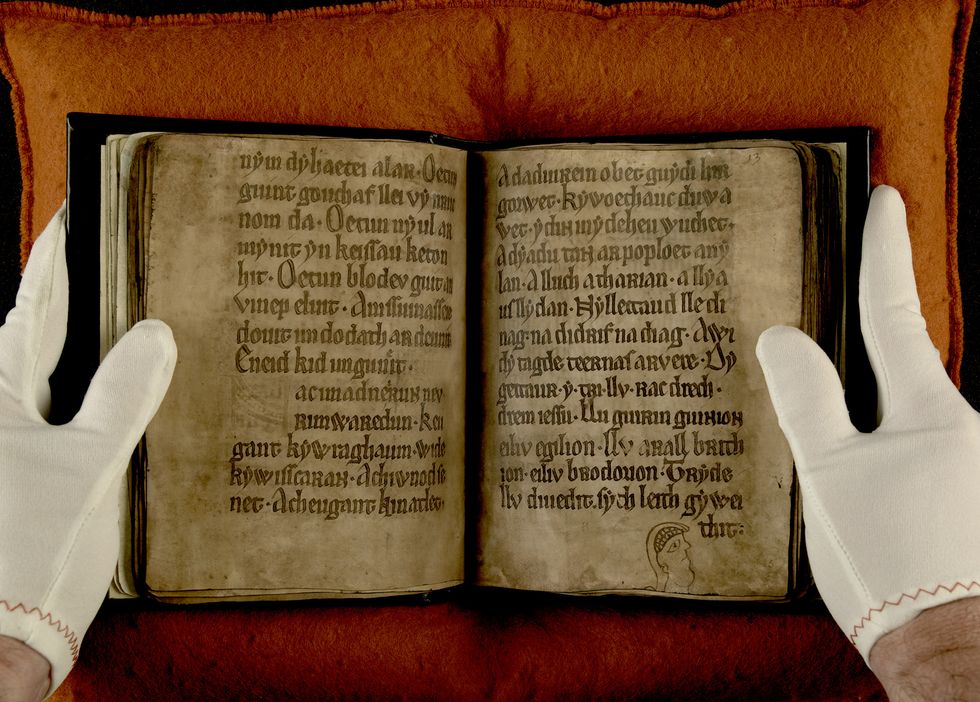 nym dyhaetei alar. Oetun
giunt gouchaf llei vy
nom da. Oetun ny ul ar
mynit yn keissau keton
hit. Oetun blodev guit ar
vinep elint. Amssuinassei
douit im do dath ar deunit
Eneid kid im guuit.
ac im adneirun nev
run waredun. kei
gant kywraghaun. wide
kywisscaran. Achiunod se
net. Acheugant kinatlet.
13
A daduirein o bet guydi hir
gorwet. Ky woethauc duw a
vet. y din iny deheu wuchet.
A dyadu tan ar poploet anylan
A lluch a tharian. a llya
us llydan. Ny llettaud lle di
nag. na didrif na diag. A wi
dy tagde teernas a rvere. Dy
gettaur. y. tri llv. rac drech.
drem iessu. Llu guirin guinion
eiliv egilion. Llv arall brith
ion eiliv brodorion. Tryde
llv diuedit. sych leith gywei
thit.